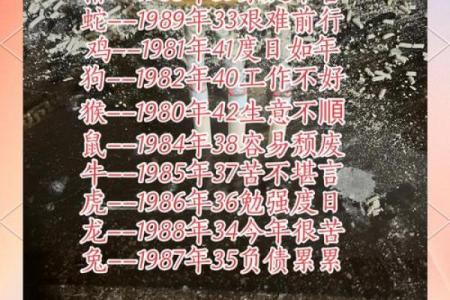 蛇--1989年33艰难前行
鸡--1981年41度日如年
狗--1982年40工作不好
猴--1980年42生意不顺
鼠--1984年38容易颓废
牛--1985年37苦不堪言
虎--1986年36勉强度日
龙--1988年34今年很苦
兔--1987年35负债累累